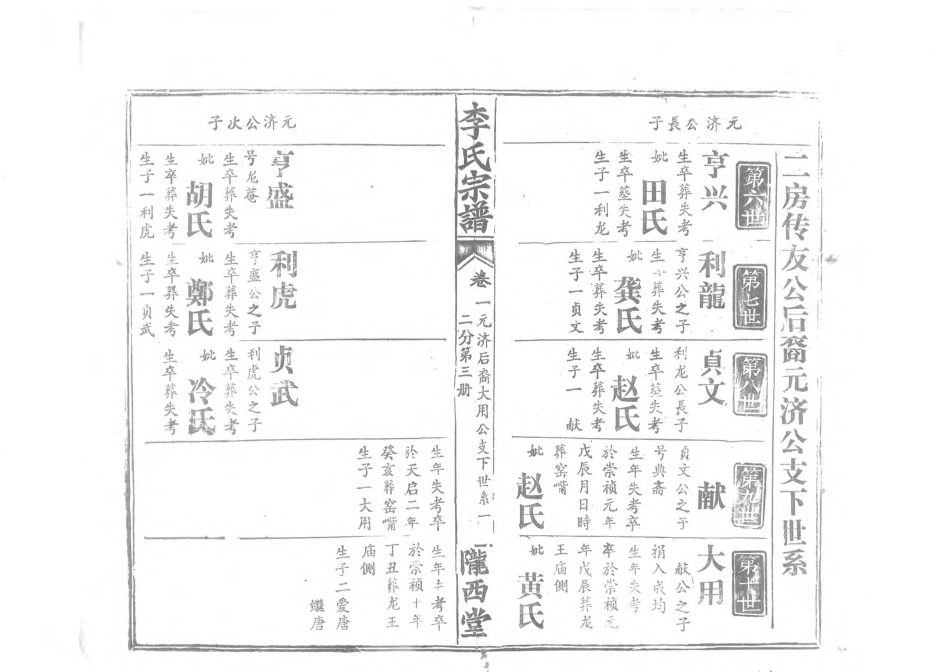 二房传友公后裔元济公支下世系
第六世
元济公長子
亨兴
生卒葬失考
妣
田氏
生卒塟失考
生子一利龙
第七世
利龍
亨兴公之子
生 葬失考
妣
龚氏
生卒葬失考
生子一贞文
第八世
貞文
利龙公長子
生卒塟失考
妣
赵氏
生卒葬失考
生子一 献
第九世
献
貞文公之子
号典斋
生年失考卒
於崇祯元年
戊辰月日時
葬窑嘴
妣
赵氏
第十世
大用
献公之子
捐入成均
生年失考
卒於崇祯元
年戊辰葬龙
王庙侧
妣
黄氏
李氏宗譜
卷一
元济后裔大用公支下世系一
二分第三册
隴西堂
元济公次子
亨盛
号龙菴
生卒葬失考
妣
胡氏
生卒葬失考
生子一利虎
利虎
亨盛公之子
生卒葬失考
妣
鄭氏
生卒葬失考
生子一貞武
贞武
利虎公之子
生卒葬失考
妣
冷氏
生卒葬失考
生年失考卒
於天启二年
癸亥葬窑嘴
生子一大用
生年 考卒
於崇祯十年
丁丑葬龙王
庙侧
生子二爱唐
繼唐